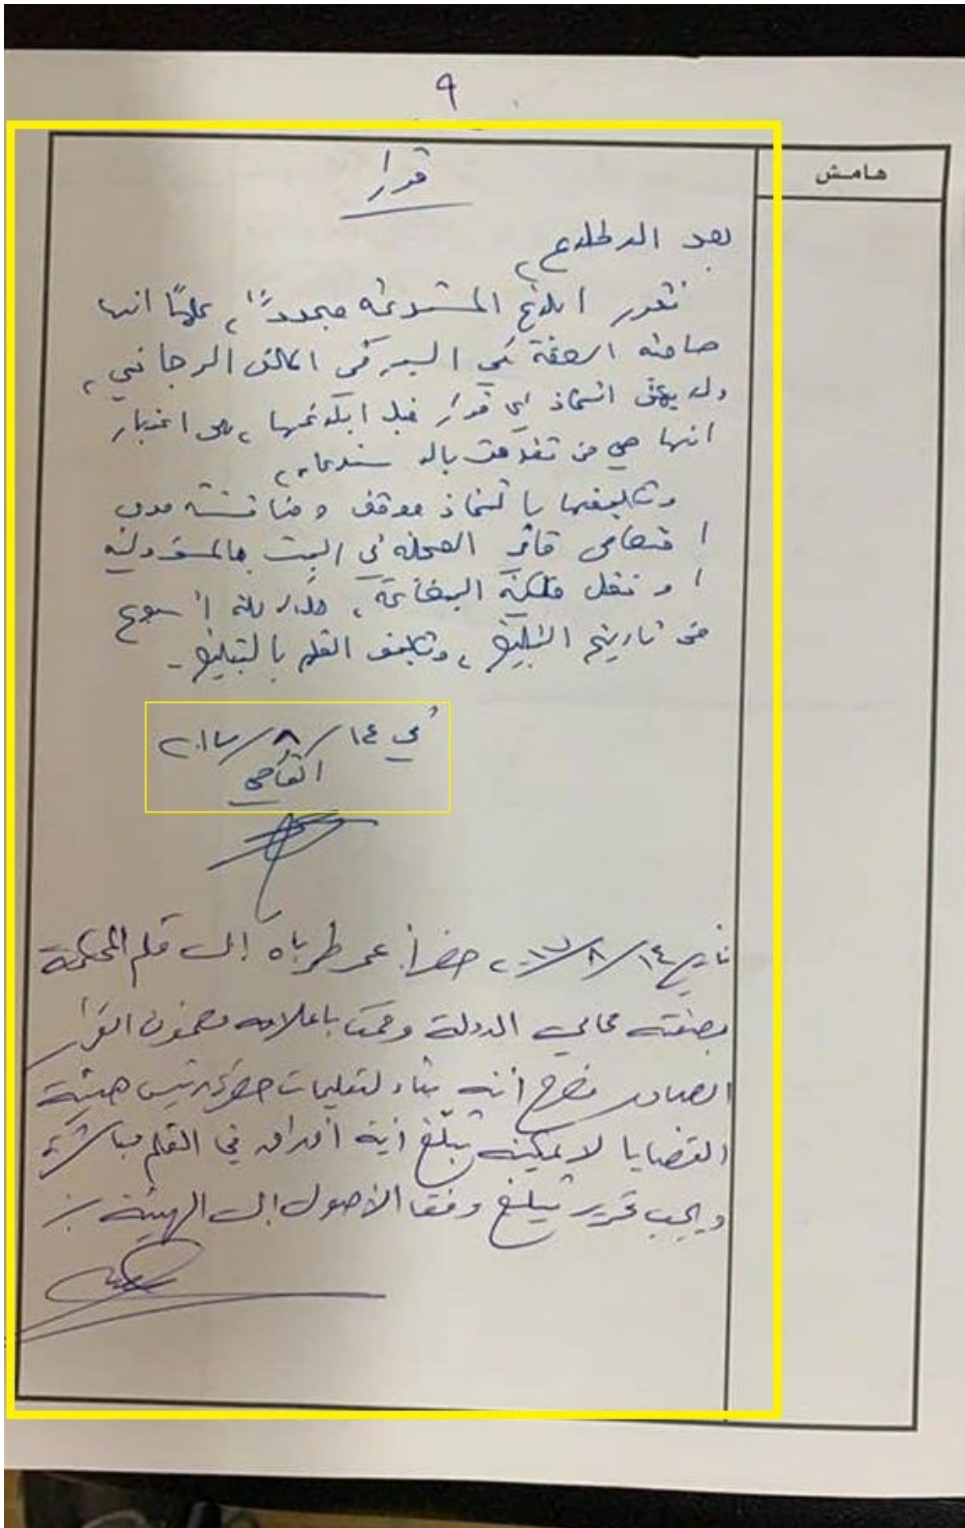 ٩
هامش
قرار
بعد الاطلاع،
نقرر ابلاغ المستدعية مجدداً، علماً انها
صاحبة الصفة في السير في الملف الرجائي،
ولا يمكن اتخاذ اي قرار قبل ابلاغها، على اعتبار
انها هي من تقدمت بالاستدعاء،
وتكليفها باتخاذ موقف ومناقشة مدى
اختصاص قاضي العجلة في البت بالمسؤولية
او نقل ملكية البضاعة، وذلك خلال اسبوع
من تاريخ التبليغ، وتكليف القلم بالتبليغ -
في ١٤/٨/٢٠١٧
القاضي
بتاريخ ١٤/٨/٢٠١٧ حضر أ. عمر طرباه إلى قلم المحكمة
بصفته محامي الدولة وقمت باعلامه مضمون القرار
الصادر فصرح أنه بناء لتعليمات حضرة رئيس هيئة
القضايا لا يمكنه تبلغ أية أوراق في القلم مباشرة
ويجب تحرير تبليغ وفقا الأصول إلى الهيئة